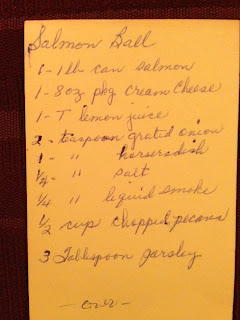 Salmon Ball
1 - 1 lb can salmon
1 - 8 oz pkg cream cheese
1 - T lemon juice
2 - teaspoon grated onion
1 - " horseradish
1/4 - " salt
1/4 " liquid smoke
1/2 cup chopped pecans
3 Tablespoon parsley
- over -